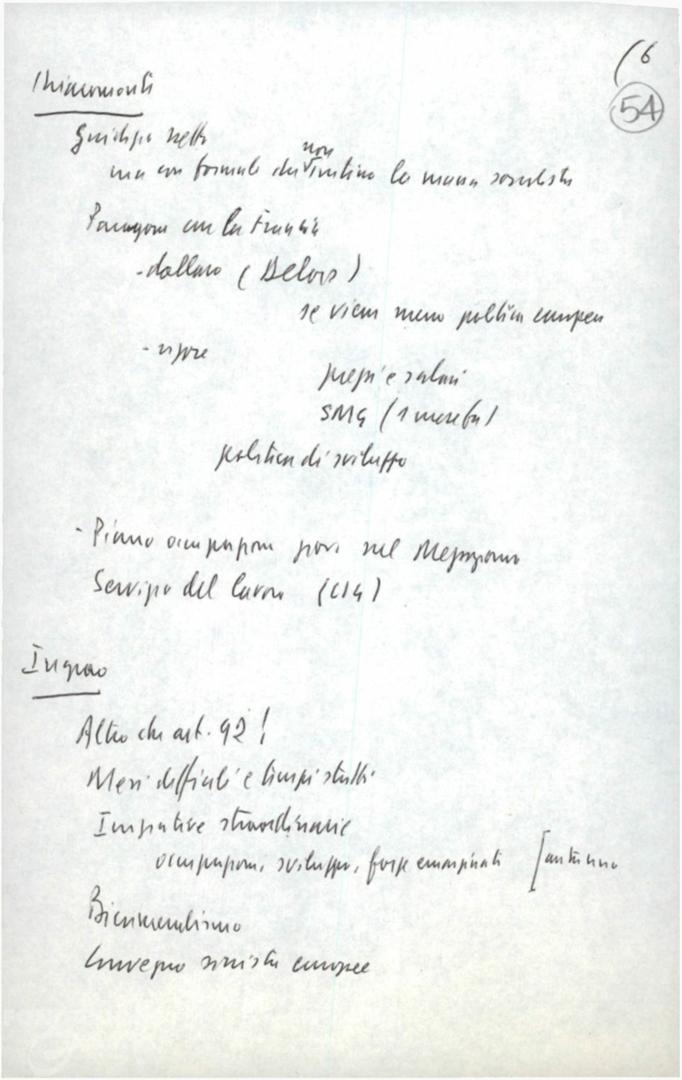 (6
54
Chiaromonte
Giudizio netto
non
ma con formule che irritino la massa socialista
Paragone con la Francia
- dollaro (Delors)
se viene meno politica europea
- rigore
prezzi e salari
SMG (1 merefu)
politica di sviluppo
- Piano occupazione giov. nel Mezzogiorno
Servizio del lavoro (CIG)
Ingrao
Altro che art. 92!
Mesi difficili e tempi stretti
Iniziative straordinarie
occupazione, sviluppo, forze emarginate [autunno
Bicameralismo
Convegno sinistre europee